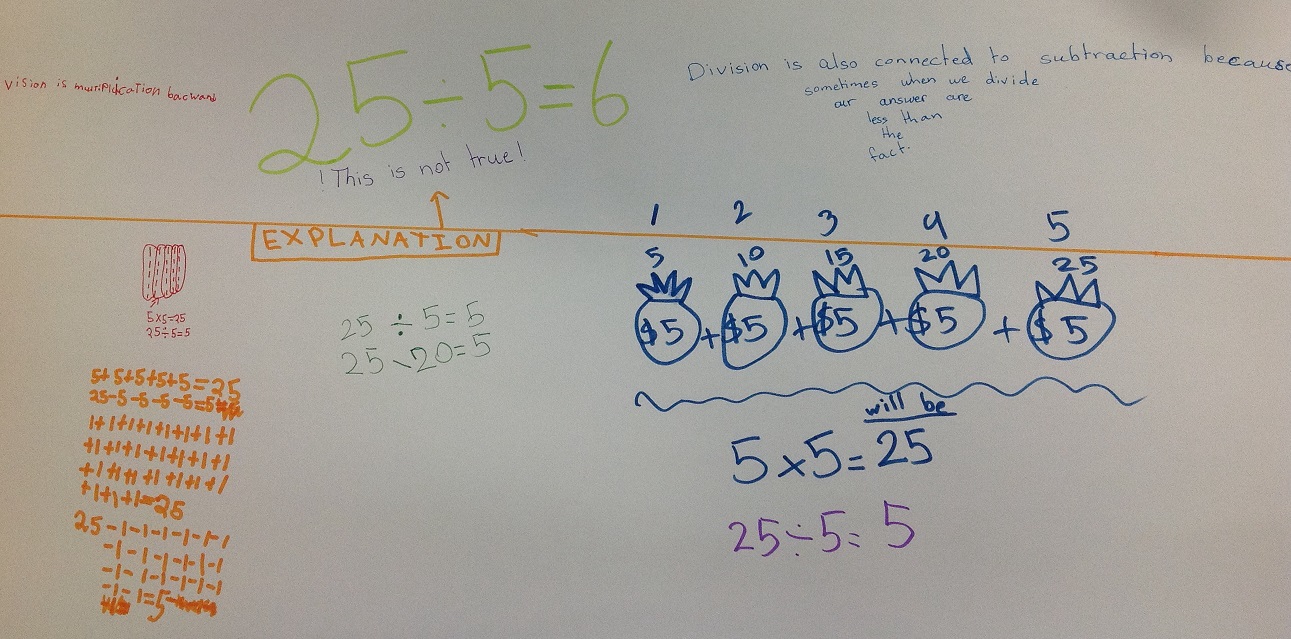 vision is multiplication bacward
25÷5=6
!This is not true!
Division is also connected to subtraction because
sometimes when we divide
our answer are
less than
the
fact.
EXPLANATION
5x5=25
25÷5=5
25÷5=5
25-20=5
5+5+5+5+5=25
25-5-5-5-5=5
1+1+1+1+1+1+1+1+1
+1+1+1+1+1+1+1+1
+1+1+1+1+1+1+1
+1+1+1=25
25-1-1-1-1-1-1
-1-1-1-1-1-1
-1-1-1-1-1-1
-1-1-1=5
1 2 3 4 5
5 10 15 20 25
$5+$5+$5+$5+$5
will be
5x5=25
25÷5=5